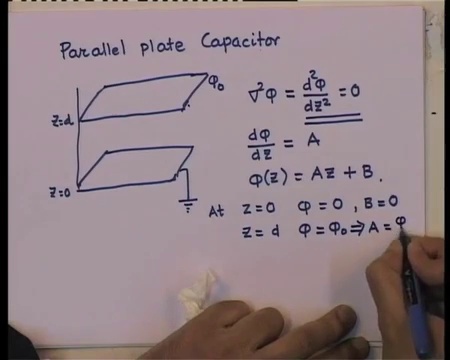 Parallel plate Capacitor
φ₀
z=d
z=0
∇²φ = d²φ/dz² = 0
dφ/dz = A
φ(z) = Az + B.
At z=0 φ=0, B=0
z=d φ=φ₀ ⇒ A = φ